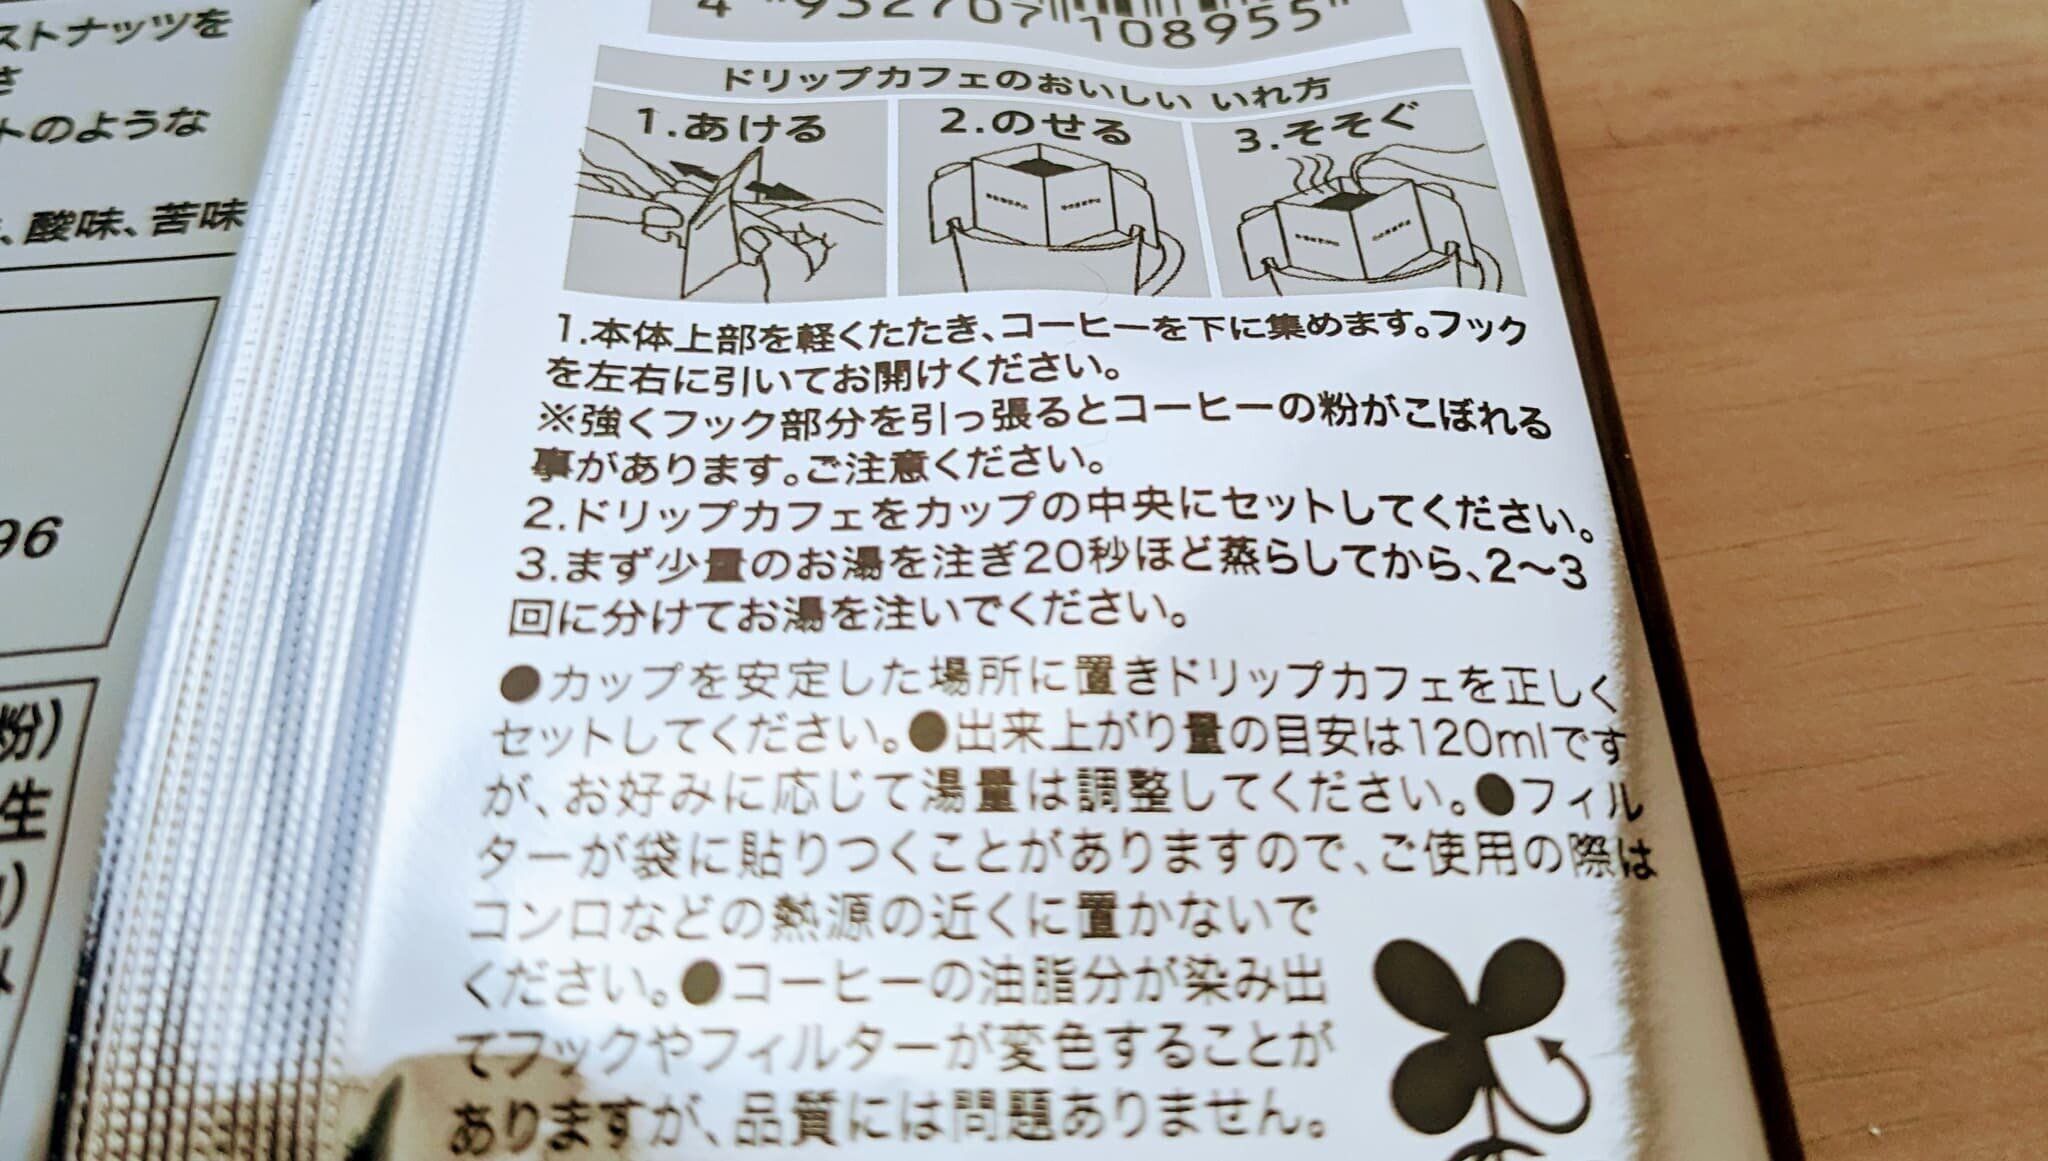 ストナッツを
さ
トのような
、酸味、苦味
96
粉)
生
4 932707 108955
ドリップカフェのおいしい いれ方
1.あける
2.のせる
3.そそぐ
1.本体上部を軽くたたき、コーヒーを下に集めます。フック
を左右に引いてお開けください。
※強くフック部分を引っ張るとコーヒーの粉がこぼれる
事があります。ご注意ください。
2.ドリップカフェをカップの中央にセットしてください。
3.まず少量のお湯を注ぎ20秒ほど蒸らしてから、2〜3
回に分けてお湯を注いでください。
●カップを安定した場所に置きドリップカフェを正しく
セットしてください。●出来上がり量の目安は120mlです
が、お好みに応じて湯量は調整してください。●フィル
ターが袋に貼りつくことがありますので、ご使用の際は
コンロなどの熱源の近くに置かないで
ください。●コーヒーの油脂分が染み出
てフックやフィルターが変色することが
ありますが、品質には問題ありません。